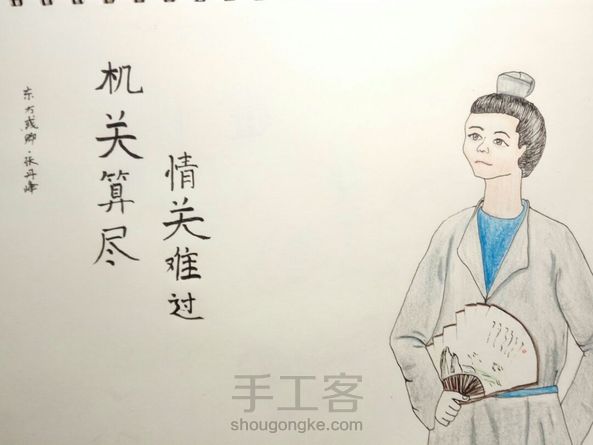 东方彧卿·张丹峰
机关算尽
情关难过
手工客
shougongke.com